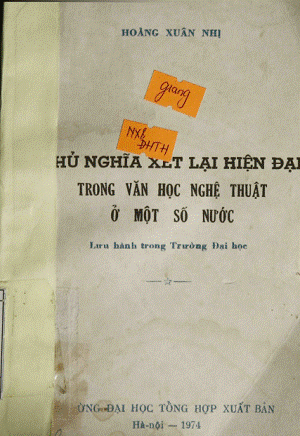 HOÀNG XUÂN NHỊ
giang
NXB
ĐHTH
HỦ NGHĨA XÉT LẠI HIỆN ĐẠI
TRONG VĂN HỌC NGHỆ THUẬT
Ở MỘT SỐ NƯỚC
Lưu hành trong Trường Đại học
ỜNG ĐẠI HỌC TỔNG HỢP XUẤT BẢN
Hà-nội — 1974